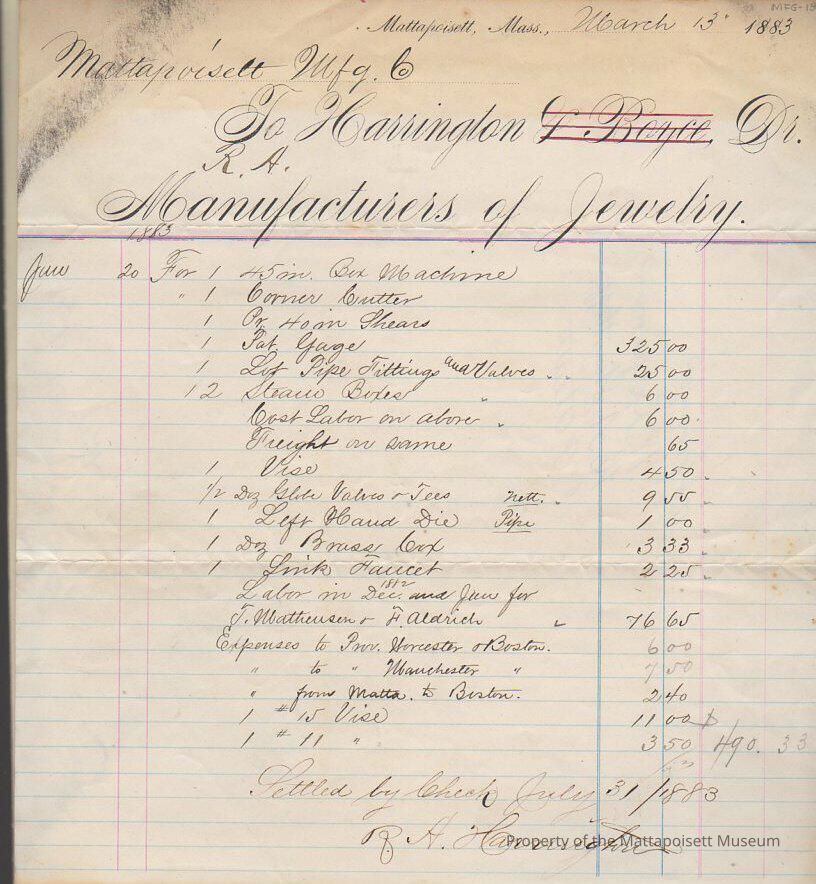 MFG-15
Mattapoisett, Mass., March 13" 1883
Mattapoisett Mfg. Co
To Harrington & Boyce, Dr.
R. A.
Manufacturers of Jewelry.
1883
Jun 20 For 1 45 in. Box Machine
" 1 Corner Cutter
1 Pr. 40 in Shears
1 Pat. Gage 325 00
1 Lot Pipe Fittings and Valves 25 00
12 Steam Boxes " 6 00
Cost Labor on above " 6 00
Freight on same 65
1 Vise 4 50
1/2 Doz Globe Valves & Tees Nett. 9 55
1 Left Hand Die Pipe 1 00
1 Doz Brass Cox 3 33
1 Sink Faucet 2 25
Labor in Dec. 1882 and Jun for
T. Mathewson & F. Aldrich " 76 65
Expenses to Prov. Worcester & Boston. 6 00
" to " Manchester " 7 50
" from Matta. to Boston. 2 40
1 # 15 Vise 11 00
1 # 11 " 3 50 490. 33
Settled by Check July 31/1883
R. A. Harrington
Property of the Mattapoisett Museum